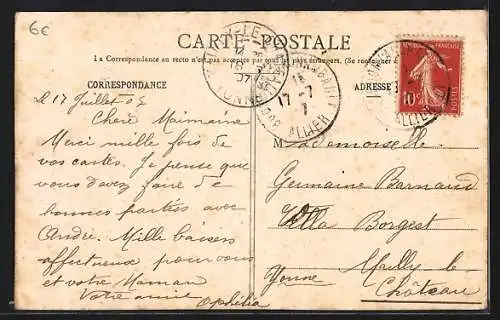 6€
CARTE POSTALE
La Correspondance au recto n'est pas acceptée par tous les pays étrangers. (Se renseigner à
CORRESPONDANCE
ADRESSE
le 17 Juillet 07
Chère Mainaine
Merci mille fois de
vos cartes. Je pense que
vous devez faire de
bonnes parties avec
André. Mille baisers
affectueux pour vous
et votre Maman
Votre amie
Ophélia
17 -7
7
ALLIER
YONNE
10
POSTES
Mademoiselle
Germaine Barnaud
Villa Borgest
Mailly le
Château
Yonne